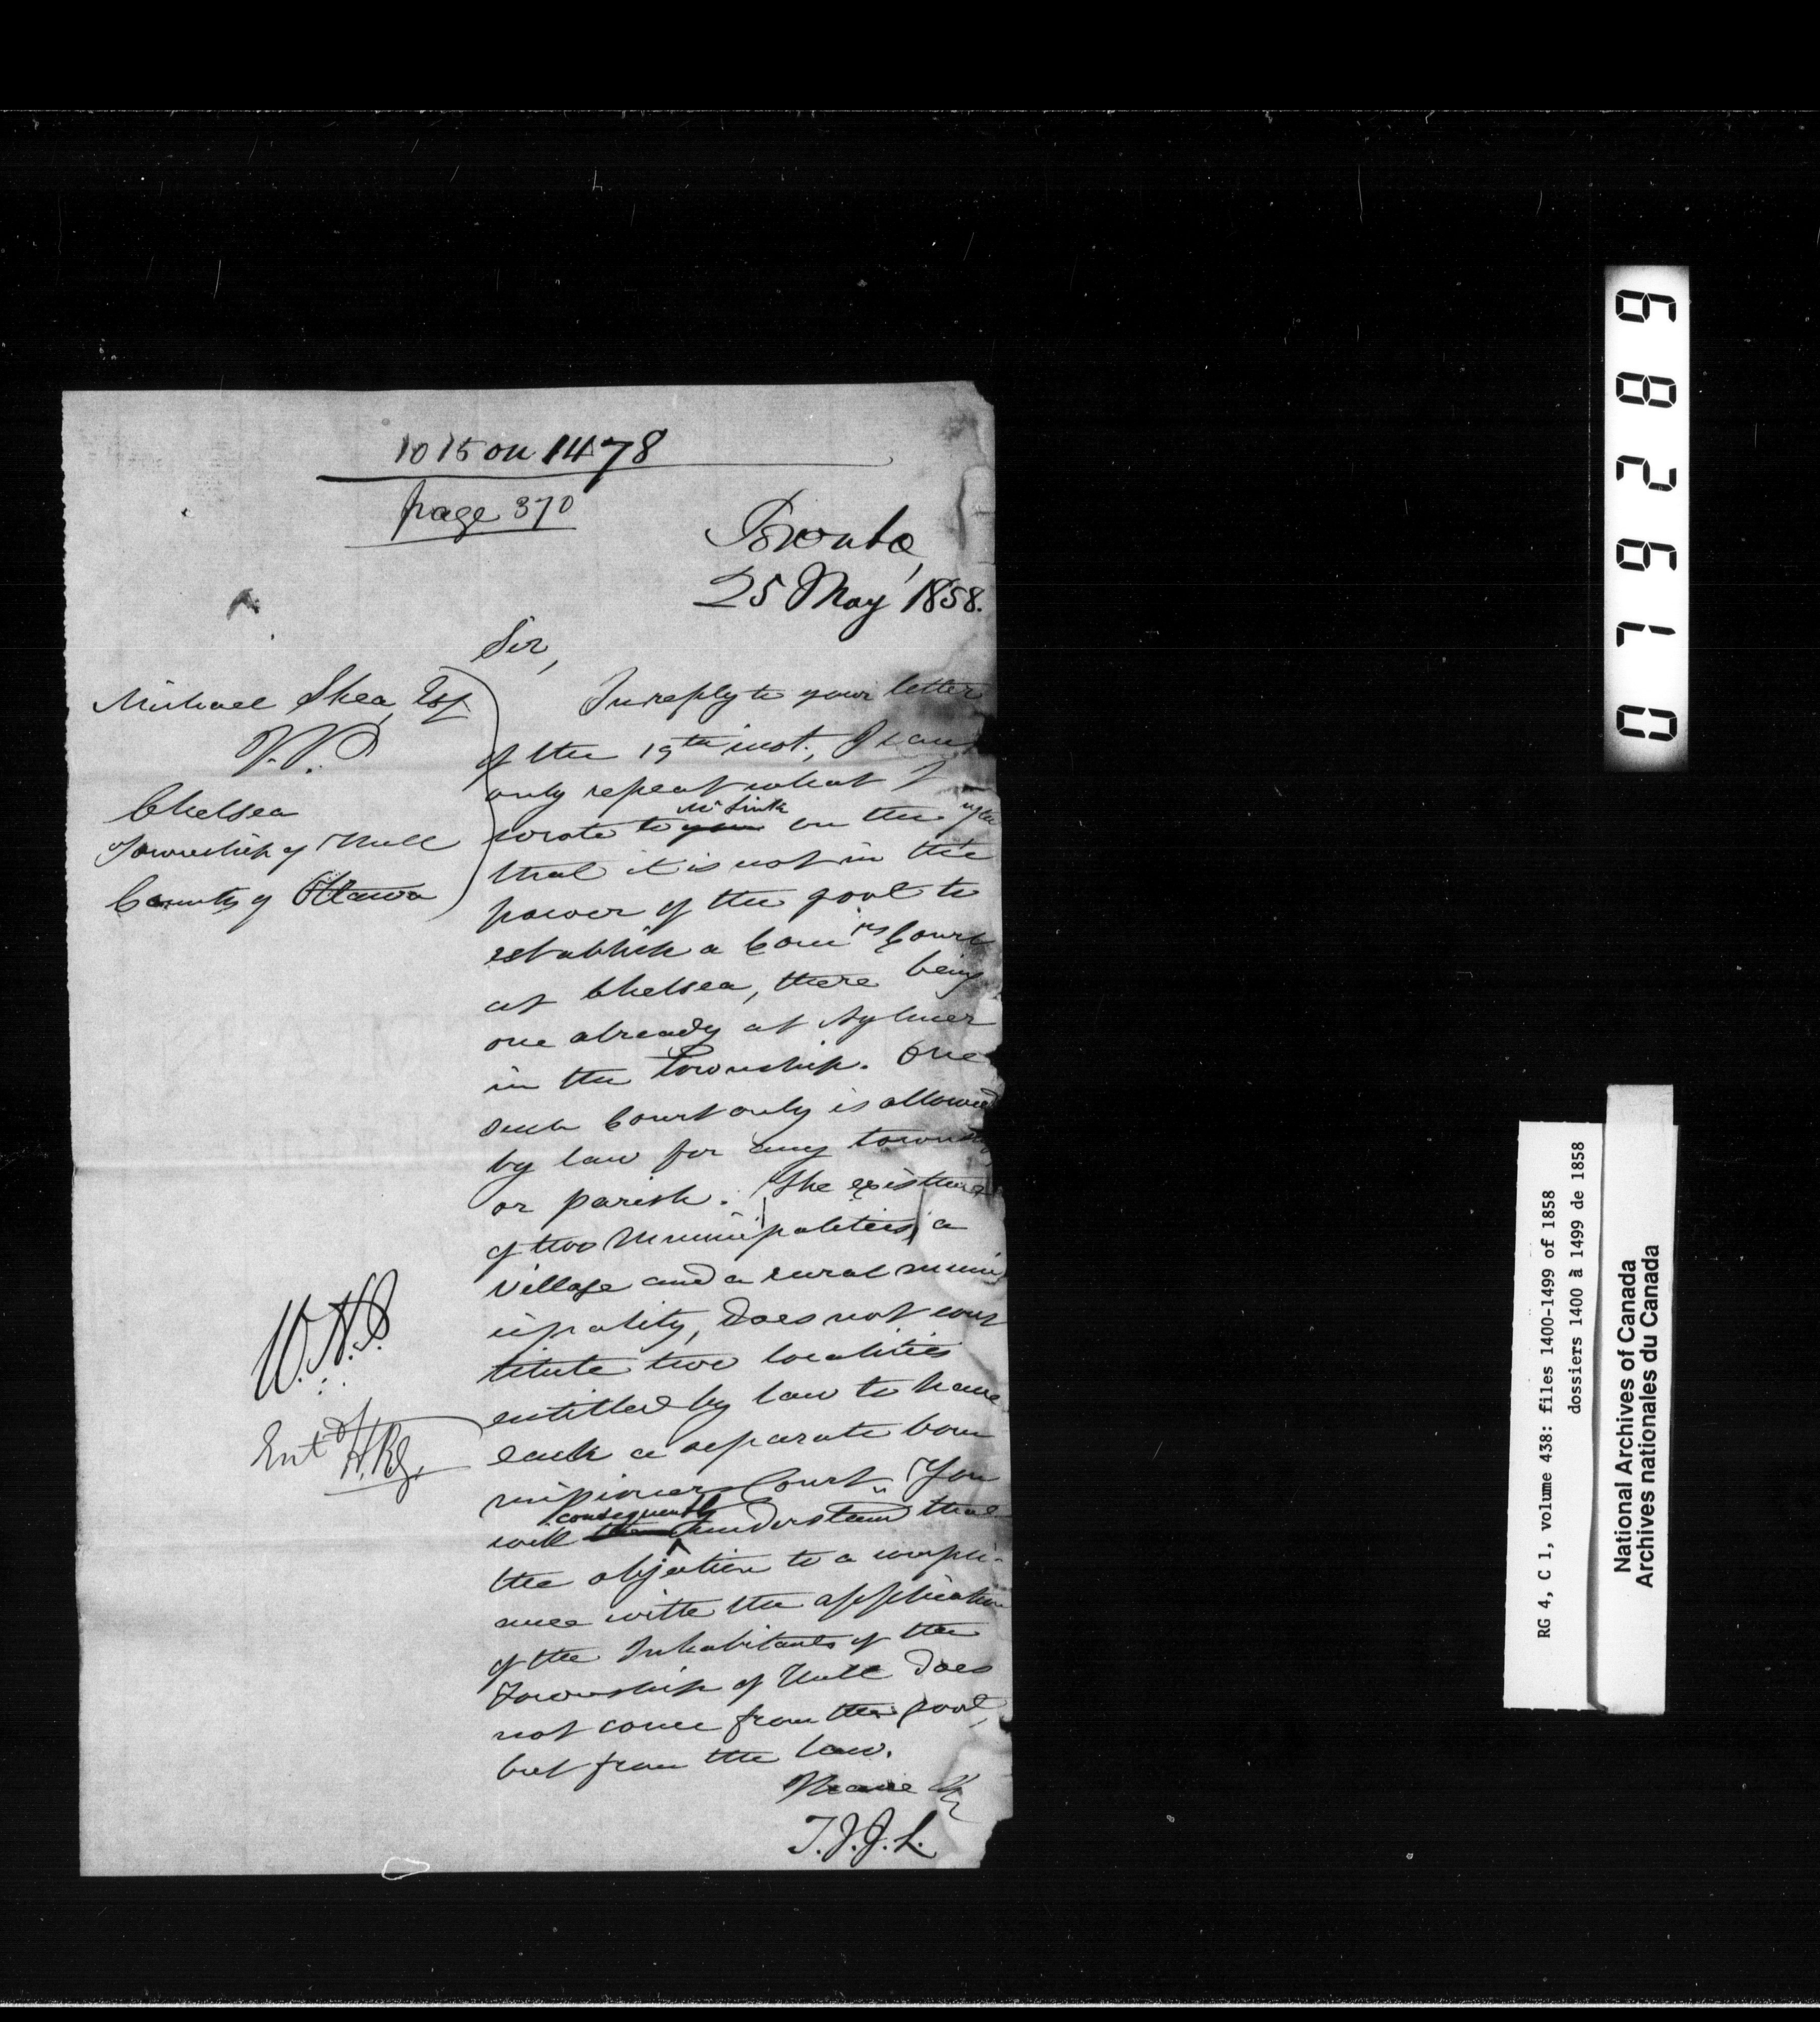 1015 on 1478
page 370
Toronto,
25 May 1858.
Sir,
Michael Shea, Esq
J.P.
Chelsea
Township of Hull
County of Ottawa
In reply to your letter
of the 19th inst., I can
only repeat what I
wrote to you Mr Smith on the
that it is not in the
power of the govt to
establish a Comrs Court
at Chelsea, there being
one already at Aylmer
in the Township. One
such Court only is allowed
by law for any towns
or parish. The existence
of two Municipalities, a
village and a rural muni
cipality, does not cons
titute two localities
entitled by law to have
each a separate Com
missioners Court. You
will then consequently understand that
the objection to a compli-
ance with the application
of the Inhabitants of the
Township of Hull does
not come from the govt,
but from the law.
T.J.J.L.
W.H.J.
Entd H.Bg.
076289
RG 4, C 1, volume 438: files 1400-1499 of 1858
dossiers 1400 à 1499 de 1858
National Archives of Canada
Archives nationales du Canada